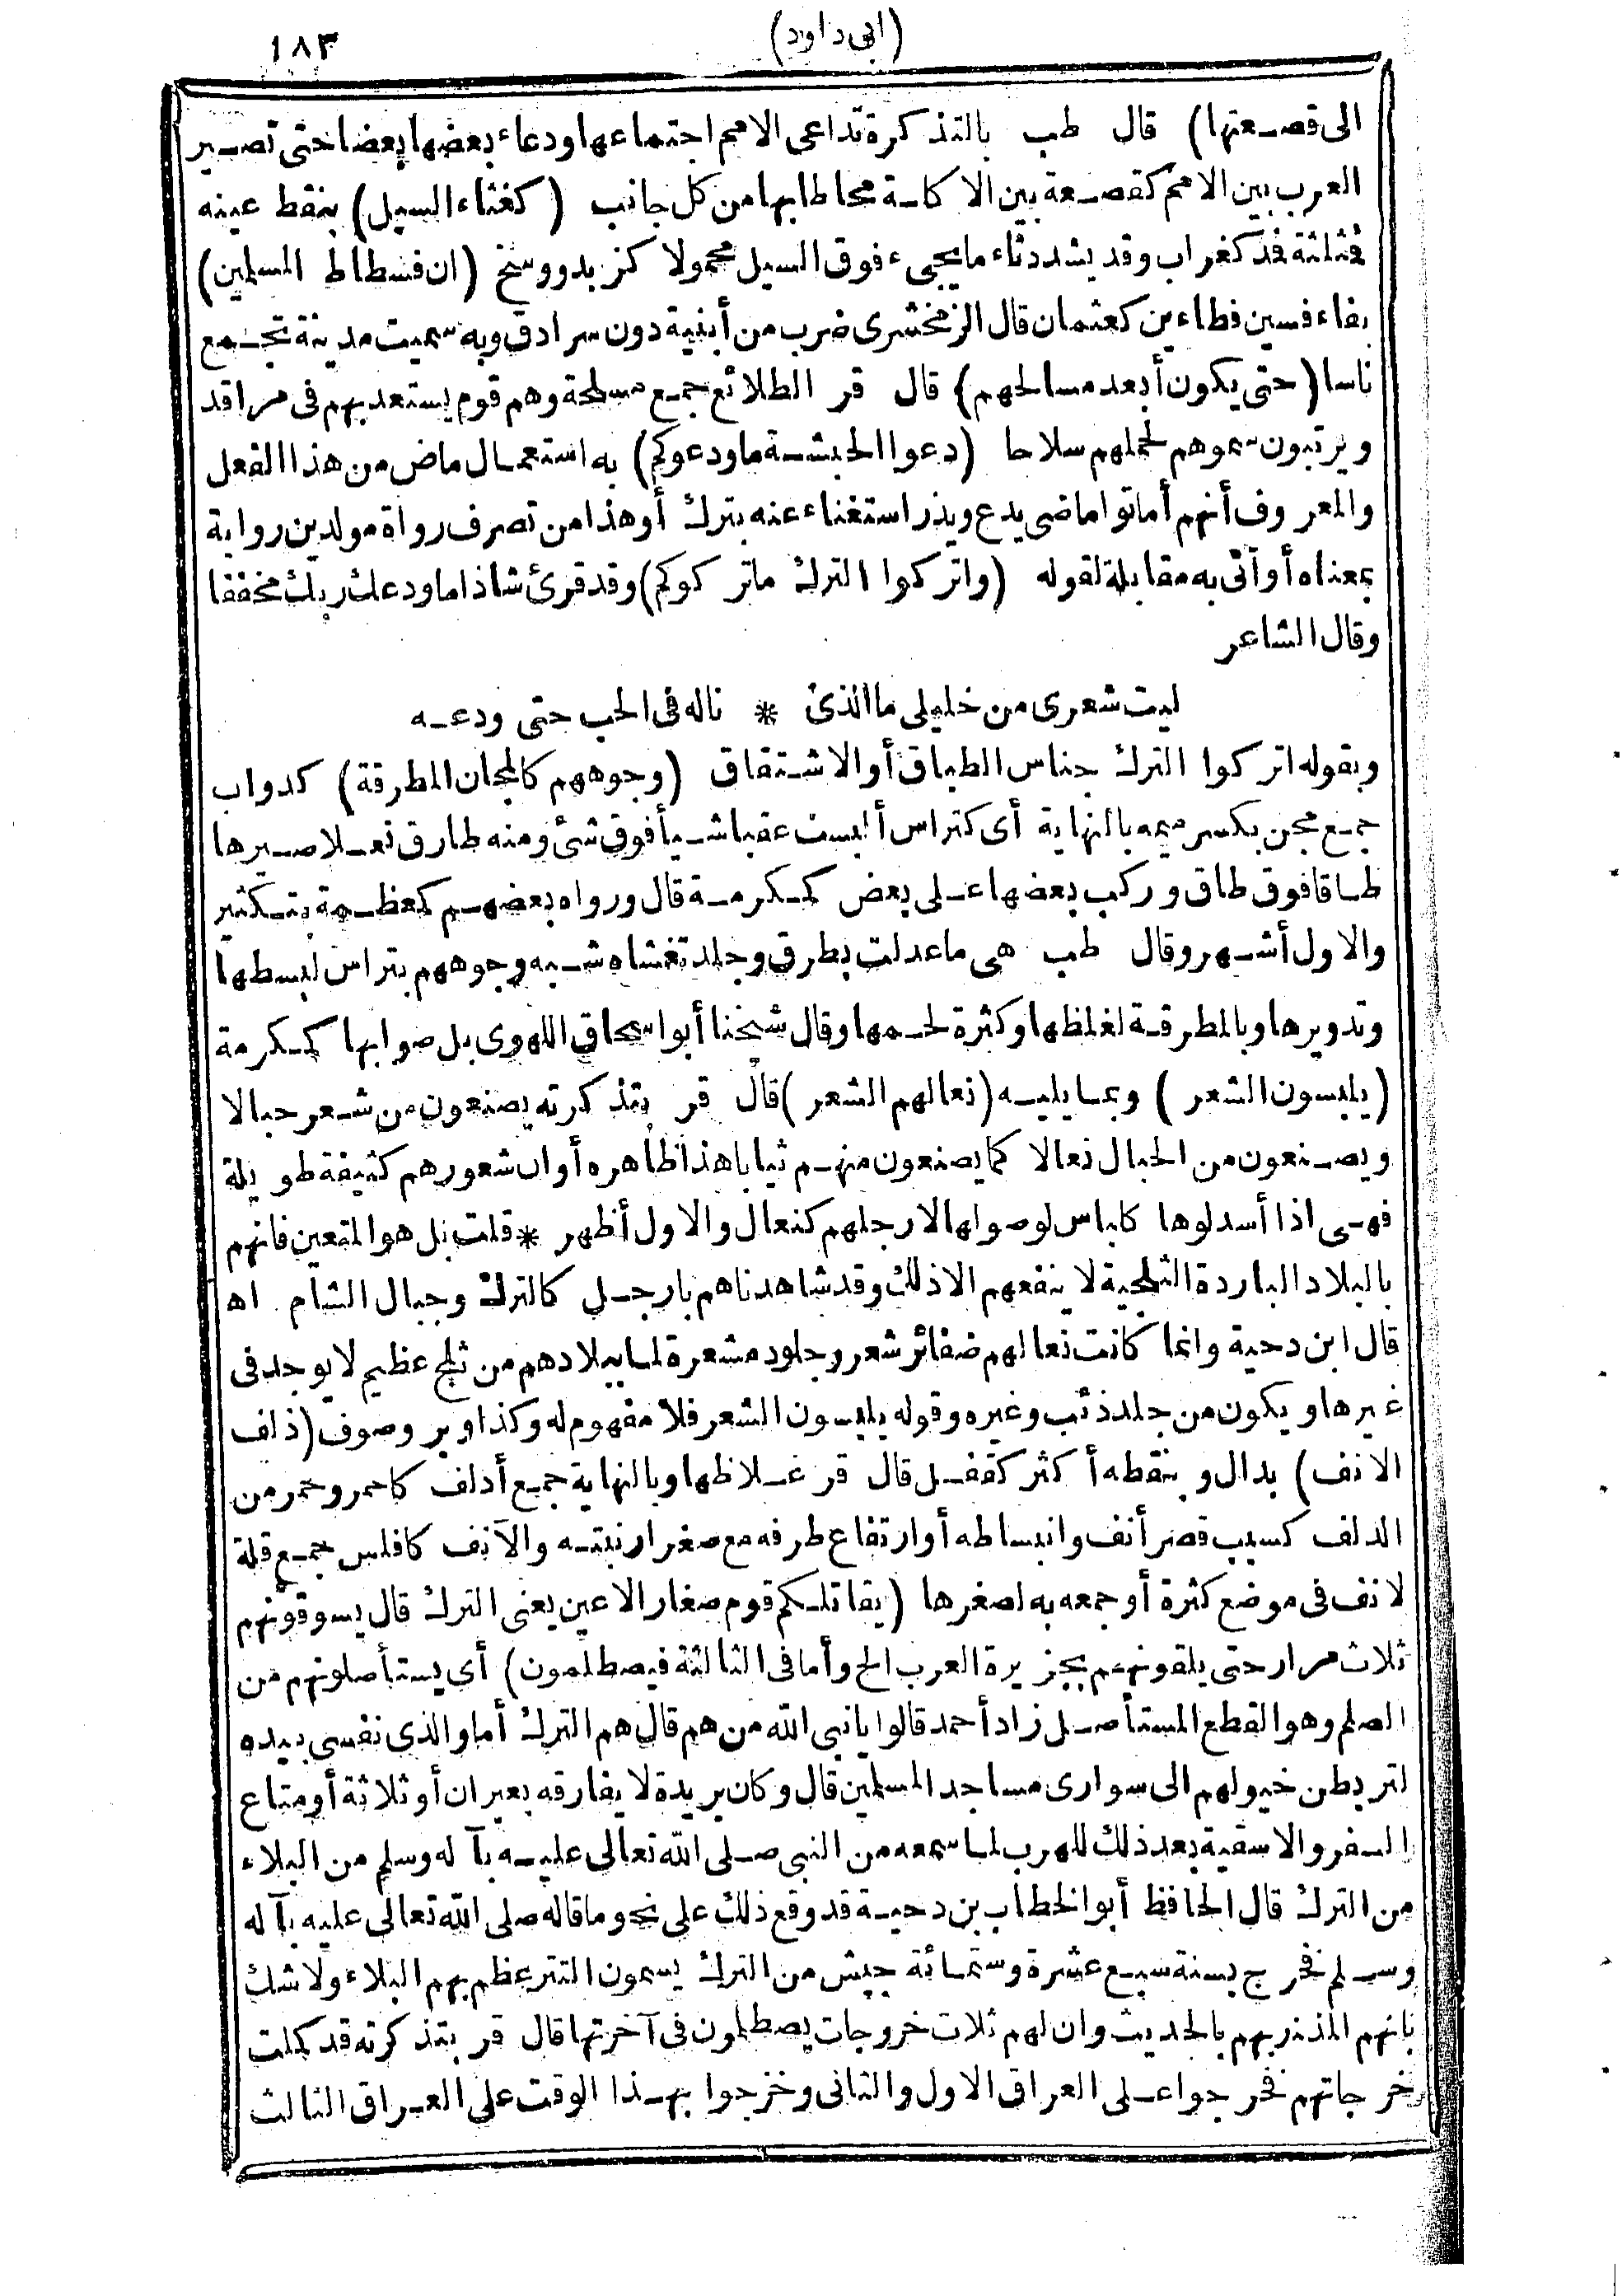 (ابى داود)
١٨٣
الى قصعتها) قال طب بالتذكرة تداعى الامم اجتماعها ودعاء بعضها بعضا حتى تصير
العرب بين الامم كقصعة بين الاكلة محاطا بها من كل جانب (كغثاء السيل) بنقط عينه
فثلثة فد كغراب وقد يشدد ثاء ما يجىء فوق السيل محمولا كزبد ووسخ (ان فسطاط المسلمين)
بفاء فسين فطاءين كعثمان قال الزمخشرى ضرب من أبنية دون سرادق وبه سميت مدينة تجمع
ناسا (حتى يكون أبعد مسالحهم) قال قر الطلائع جمع مسلحة وهم قوم يستعد بهم فى مراقد
ويرتبون سموهم لحملهم سلاحا (دعوا الحبشة ما ودعوكم) به استعمال ماض من هذا الفعل
والمعروف أنهم أماتوا ماضى يدع ويذر استغناء عنه بترك أو هذا من تصرف رواة مولدين رواية
بمعناه أو آتى به مقابلة لقوله (واتركوا الترك ما تركوكم) وقد قرئ شاذا ما ودعك ربك مخففا
وقال الشاعر
ليت شعرى من خليلى ما الذى * ناله فى الحب حتى ودعه
وبقوله اتركوا الترك جناس الطباق أو الاشتقاق (وجوههم كالمجان المطرقة) كدواب
جمع مجن بكسر ميمه بالنهاية أى كتراس ألبست عقبا شيأ فوق شئ ومنه طارق نعلا صيرها
طاقا فوق طاق وركب بعضها على بعض كمكرمة قال ورواه بعضهم كعظمة بتكثير
والاول أشهر وقال طب هى ما عدلت بطرق وجلد تغشاه شبه وجوههم بتراس لبسطها
وتدويرها وبالمطرقة لغلظها وكثرة لحمها وقال شيخنا أبو اسحاق اللهوى بل صوابها كمكرمة
(يلبسون الشعر) وبما يليه (نعالهم الشعر) قال قر بتذكرته يصنعون من شعر حبالا
ويصنعون من الحبال نعالا كما يصنعون منهم ثيابا هذا ظاهره أو ان شعورهم كثيفة طويلة
فهى اذا أسدلوها كاباس لوصولها لارجلهم كنعال والاول أظهر * قلت بل هو المتعين فانهم
بالبلاد الباردة الثلجية لا ينفعهم الا ذلك وقد شاهدناهم بارجل كالترك وجبال الشام اه
قال ابن دحية وانما كانت نعالهم ضفائر شعر وجلود مشعرة لما ببلادهم من ثلج عظيم لا يوجد فى
غيرها ويكون من جلد ذئب وغيره وقوله يلبسون الشعر فلا مفهوم له وكذا وبر وصوف (ذلف
الانف) بدال وبنقطه أكثر كقفل قال قر غلاظها وبالنهاية جمع أدلف كاحمر وحمر من
الدلف كسبب قصر أنف وانبساطه أو ارتفاع طرفه مع صغر ارنبته والآنف كافلس جمع قلة
لانف فى موضع كثرة أو جمعه به لصغرها (يقاتلكم قوم صغار الاعين يعنى الترك قال يسوقونهم
ثلاث مرار حتى يلقونهم بجزيرة العرب الخ وأما فى الثالثة فيصطلمون) أى يستأصلونهم من
الصلم وهو القطع المستأصل زاد أحمد قالوا يا نبى الله من هم قال هم الترك أما والذى نفسى بيده
لتربطن خيولهم الى سوارى مساجد المسلمين قال وكان بريدة لا يفارقه بعيران أو ثلاثة أو متاع
السفر والاسقية بعد ذلك للهرب لما سمعه من النبى صلى الله تعالى عليه بآ له وسلم من البلاء
من الترك قال الحافظ أبو الخطاب بن دحية قد وقع ذلك على نحو ما قاله صلى الله تعالى عليه بآ له
وسلم فخرج بسنة سبع عشرة وستمائة جيش من الترك يسمون التتر عظم بهم البلاء ولا شك
بانهم المنذر بهم بالحديث وان لهم ثلاث خروجات يصطلمون فى آخرتها قال قر بتذكرته قد كملت
خرجاتهم فخرجوا على العراق الاول والثانى وخرجوا بهذا الوقت على العراق الثالث